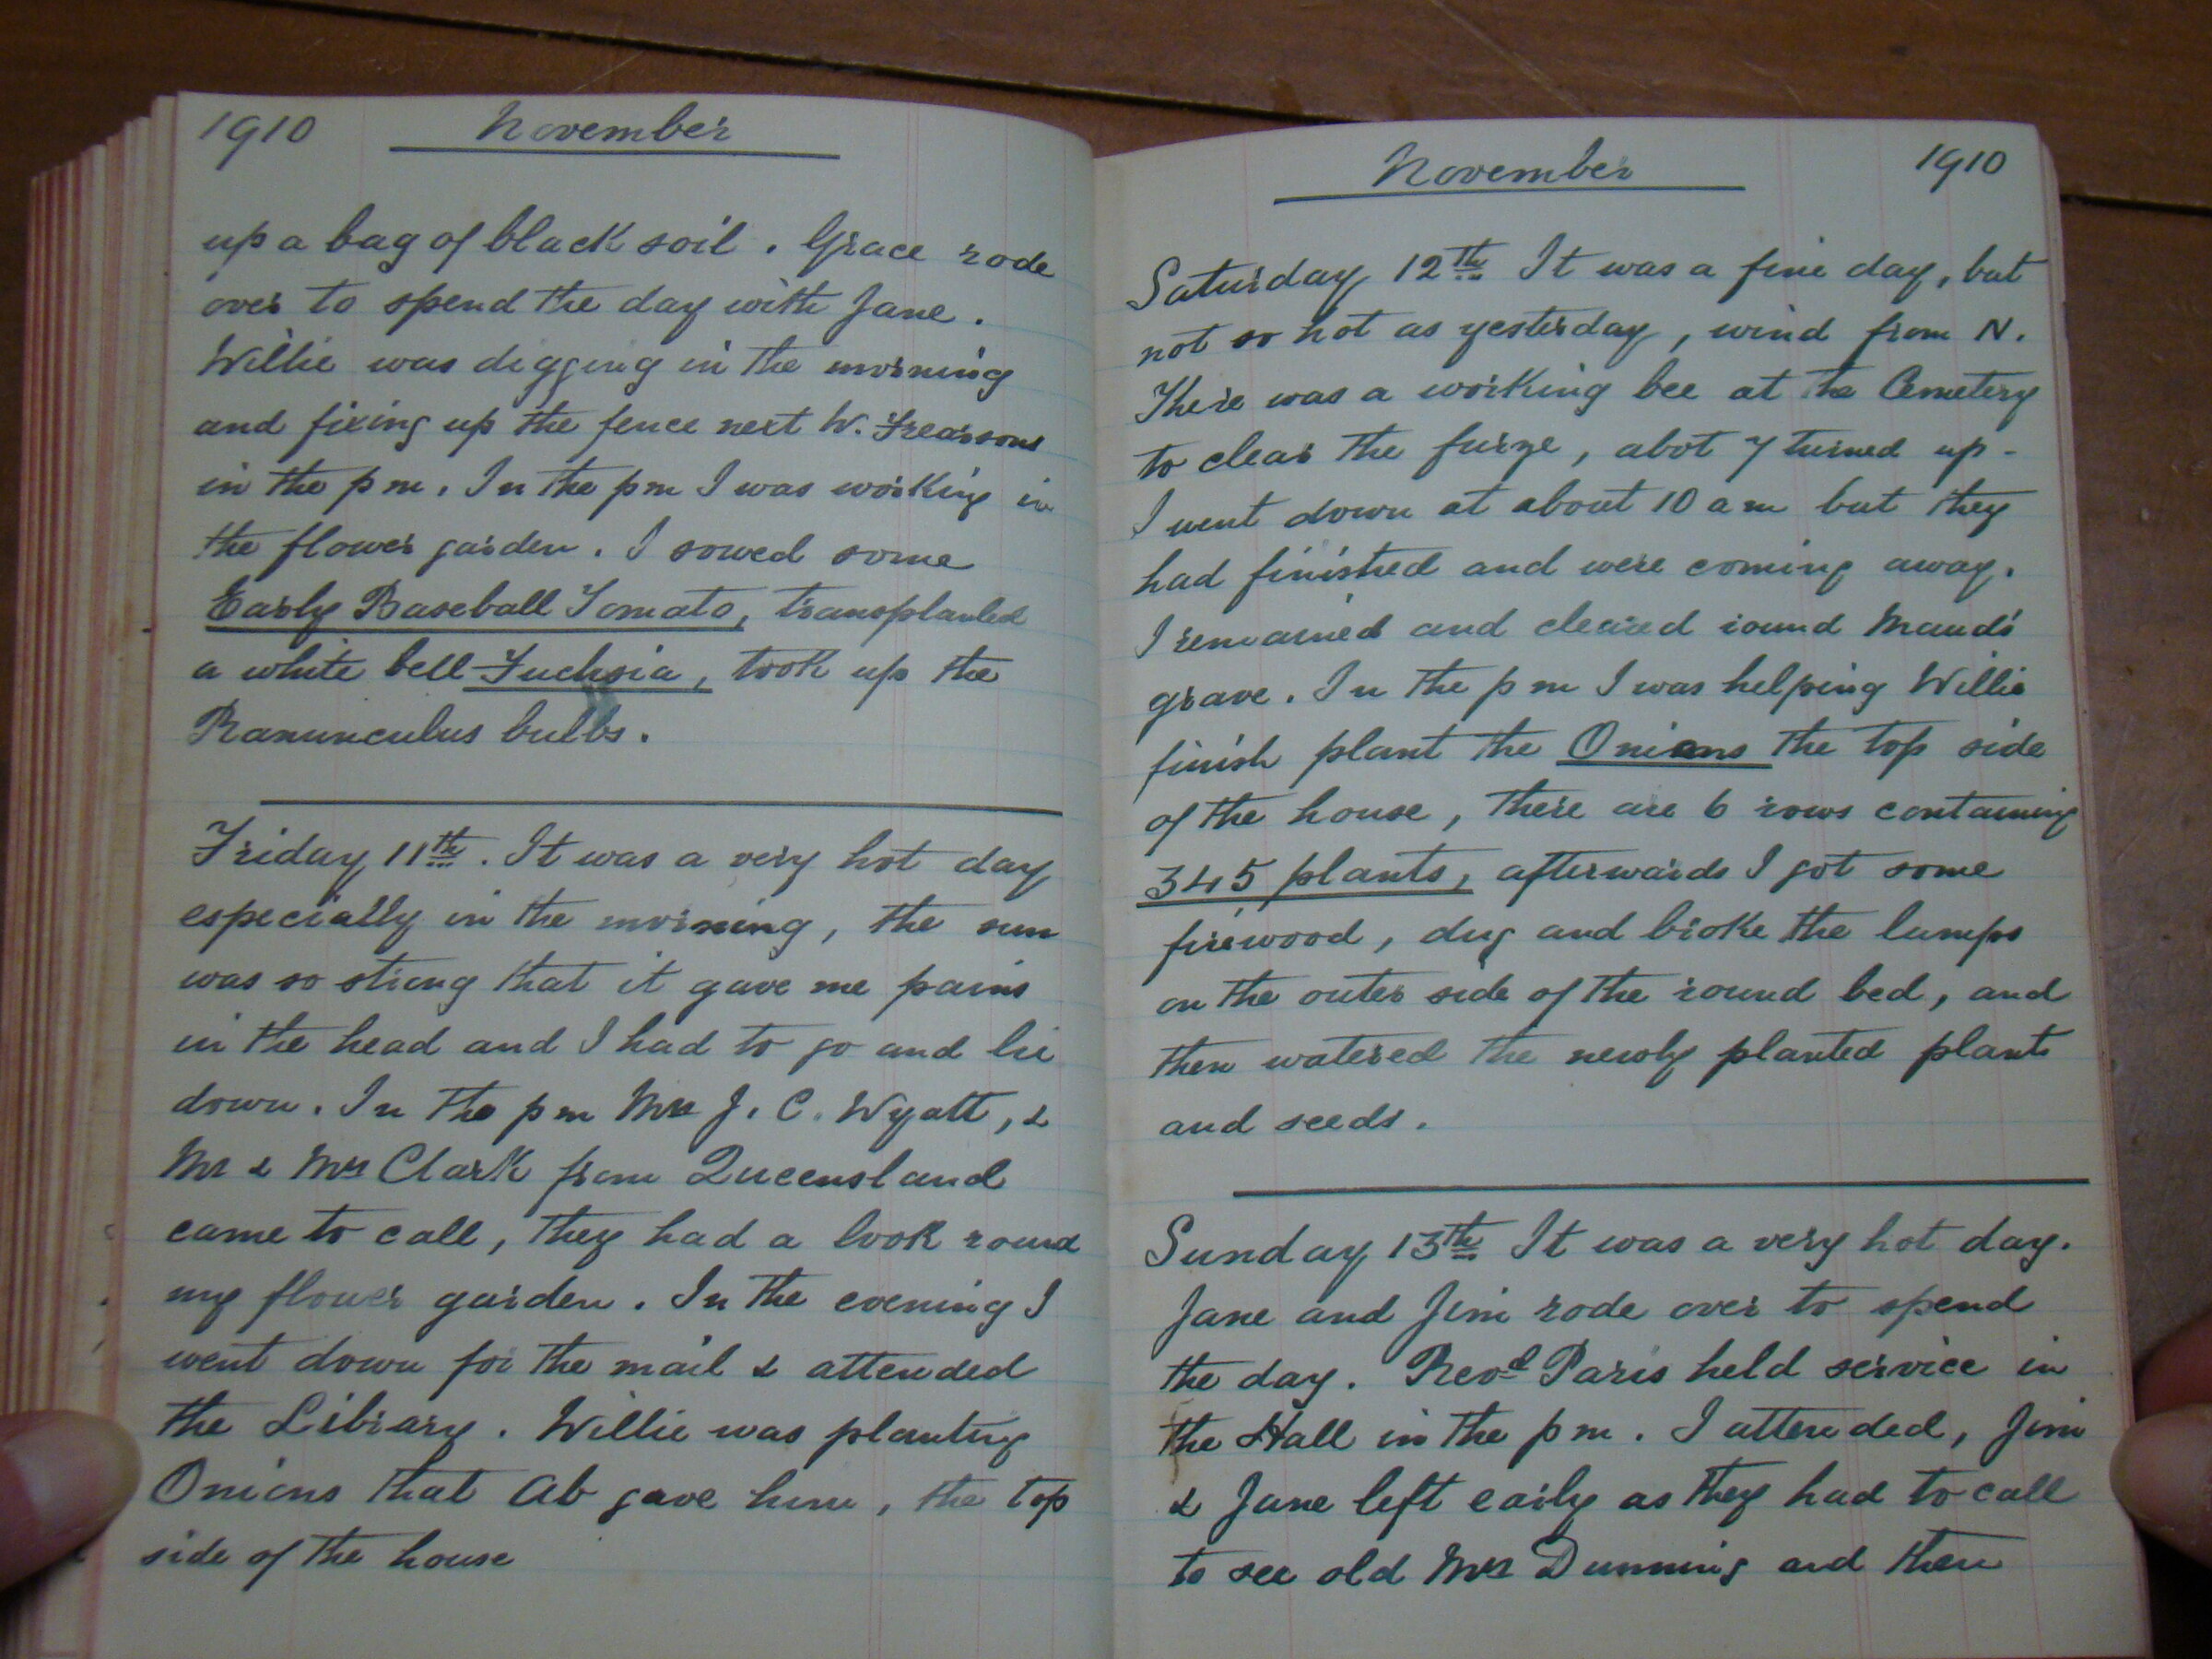 1910 November
up a bag of black soil. Grace rode
over to spend the day with Jane.
Willie was digging in the morning
and fixing up the fence next W. Frearsons
in the p m. In the p m I was working in
the flower garden. I sowed some
Early Baseball Tomato, transplanted
a white bell Fuchsia, took up the
Ranunculus bulbs.
Friday 11th. It was a very hot day
especially in the morning, the sun
was so strong that it gave me pains
in the head and I had to go and lie
down. In the p m Mrs J. C. Wyatt, &
Mr & Mrs Clark from Queensland
came to call, they had a look round
my flower garden. In the evening I
went down for the mail & attended
the Library. Willie was planting
Onions that Ab gave him, the top
side of the house
November 1910
Saturday 12th It was a fine day, but
not so hot as yesterday, wind from N.
There was a working bee at the Cemetery
to clear the furze, abot 7 turned up -
I went down at about 10 a m but they
had finished and were coming away.
I remained and cleared round Maud's
grave. In the p m I was helping Willie
finish plant the Onions the top side
of the house, there are 6 rows containing
345 plants, afterwards I got some
firewood, dug and broke the lumps
on the outer side of the round bed, and
then watered the newly planted plants
and seeds.
Sunday 13th It was a very hot day.
Jane and Jim rode over to spend
the day. Revd Paris held service in
the Hall in the p m. I attended, Jim
& Jane left early as they had to call
to see old Mrs Dunning and then